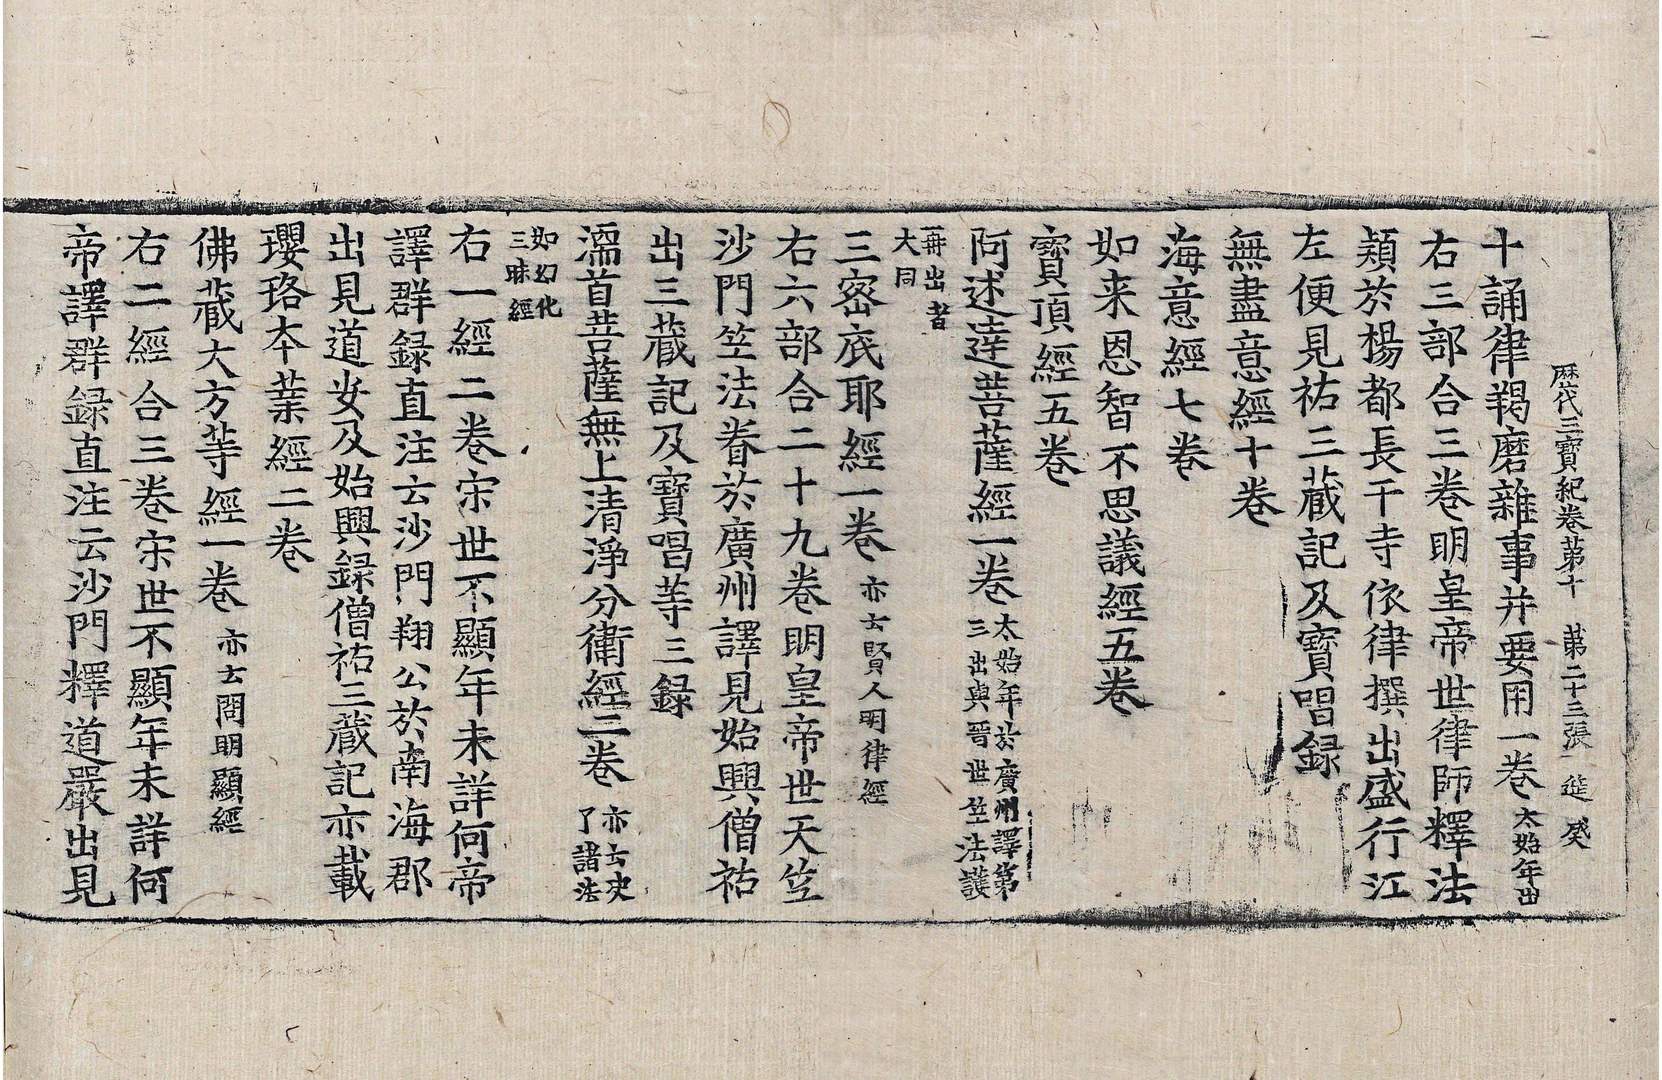 歷代三寶紀卷苐十 苐二十三張 進 癸
十誦律羯磨雜事并要用一卷 太始年出
右三部合三卷明皇帝世律師釋法
穎於楊都長干寺依律撰出盛行江
左便見祐三藏記及寶唱録
無盡意經十卷
海意經七卷
如来恩智不思議經五卷
寶頂經五卷
阿述逹菩薩經一卷 太始年於廣州譯第
三出與晉世竺法護
再出者
大同
三密底耶經一卷 亦云賢人明律經
右六部合二十九卷明皇帝世天竺
沙門竺法眷於廣州譯見始興僧祐
出三藏記及寶唱等三録
濡首菩薩無上清淨分衛經二卷 亦云决
了諸法
如幻化
三昧經
右一經二卷宋世不顯年未詳何帝
譯群録直注云沙門翔公於南海郡
出見道安及始興録僧祐三藏記亦載
瓔珞本業經二卷
佛藏大方等經一卷 亦云問明顯經
右二經合三卷宋世不顯年未詳何
帝譯群録直注云沙門釋道嚴出見